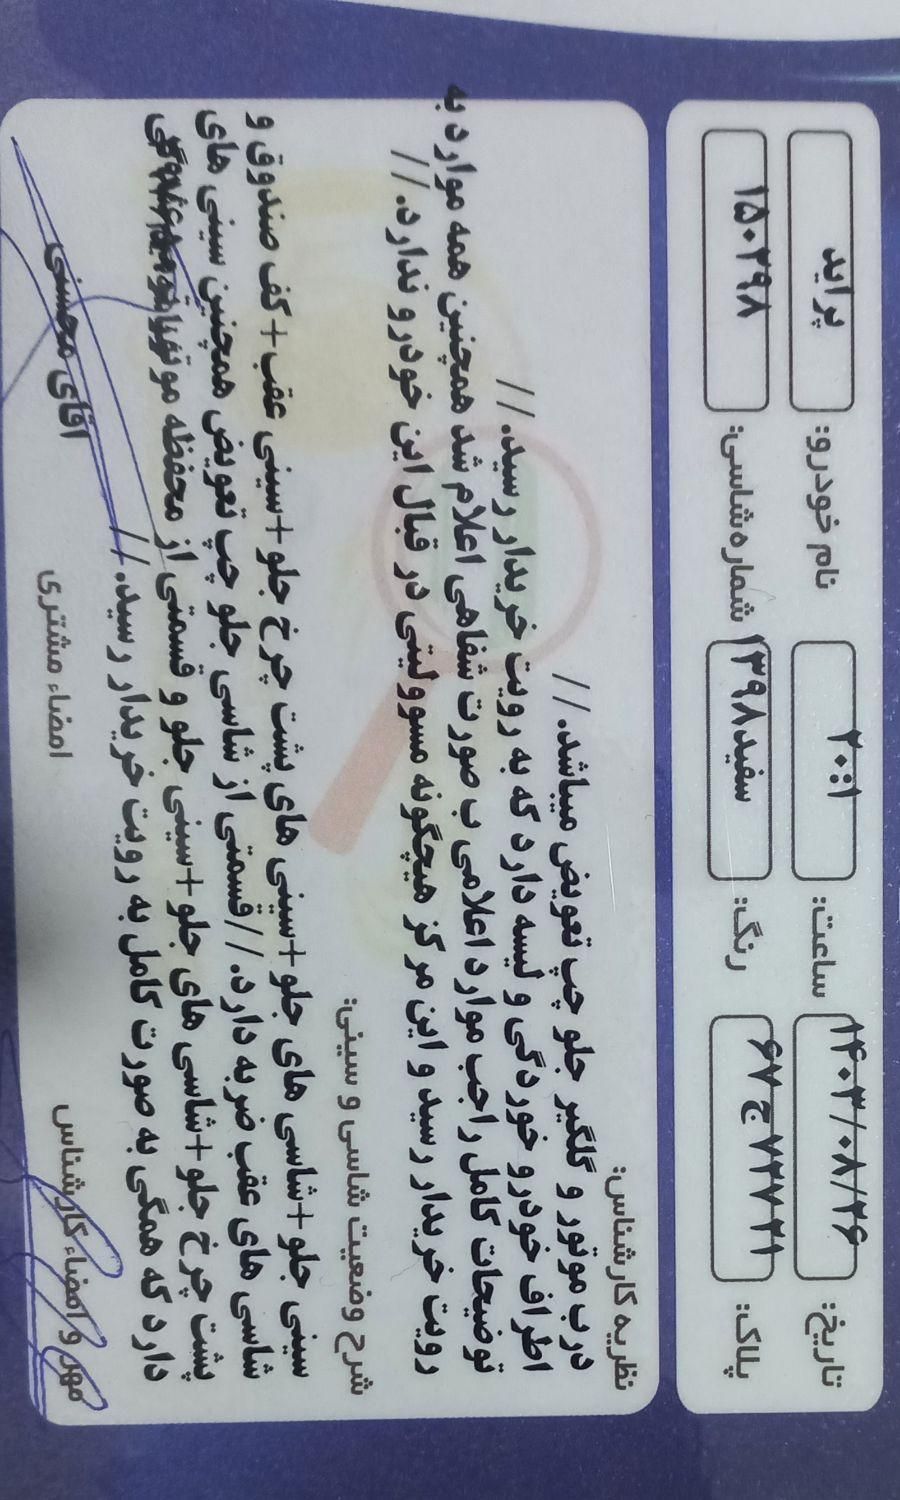 نام خودرو: پراید
ساعت: ۲۰:۱
تاریخ: ۱۴۰۳/۰۸/۲۶
شماره شاسی: ۱۵۰۲۹۸
رنگ: سفید۱۳۹۸
پلاک:
نظریه کارشناس:
درب موتور و گلگیر جلو چپ تعویض میباشد. //
اطراف خودرو خوردگی و لیسه دارد که به رویت خریدار رسید. //
توضیحات کامل راجب موارد اعلامی ب صورت شفاهی اعلام شد همچنین همه موارد به
رویت خریدار رسید و این مرکز هیچگونه مسوولیتی در قبال این خودرو ندارد. //
شرح وضعیت شاسی و سینی:
سینی جلو +شاسی های جلو +سینی های پشت چرخ جلو +سینی عقب+ کف صندوق و
شاسی های عقب ضربه دارد. //قسمتی از شاسی جلو چپ تعویض همچنین سینی های
پشت چرخ جلو +شاسی های جلو +سینی جلو و قسمتی از محفظه موتور
دارد که همگی به صورت کامل به رویت خریدار رسید. //
آقای محسنی
امضاء مشتری
مهر و امضاء کارشناس